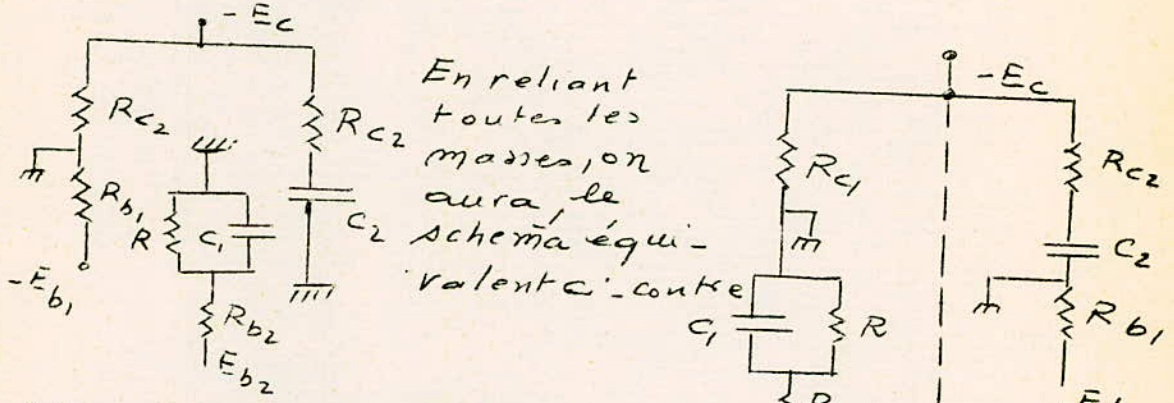 -Ec
Rc2
Rc2
Rb1
R
C1
C2
-Eb1
Rb2
Eb2
En reliant
toutes les
masses, on
aura, le
schema équi-
valent ci-contre
-Ec
Rc1
Rc2
C2
C1
R
Rb1